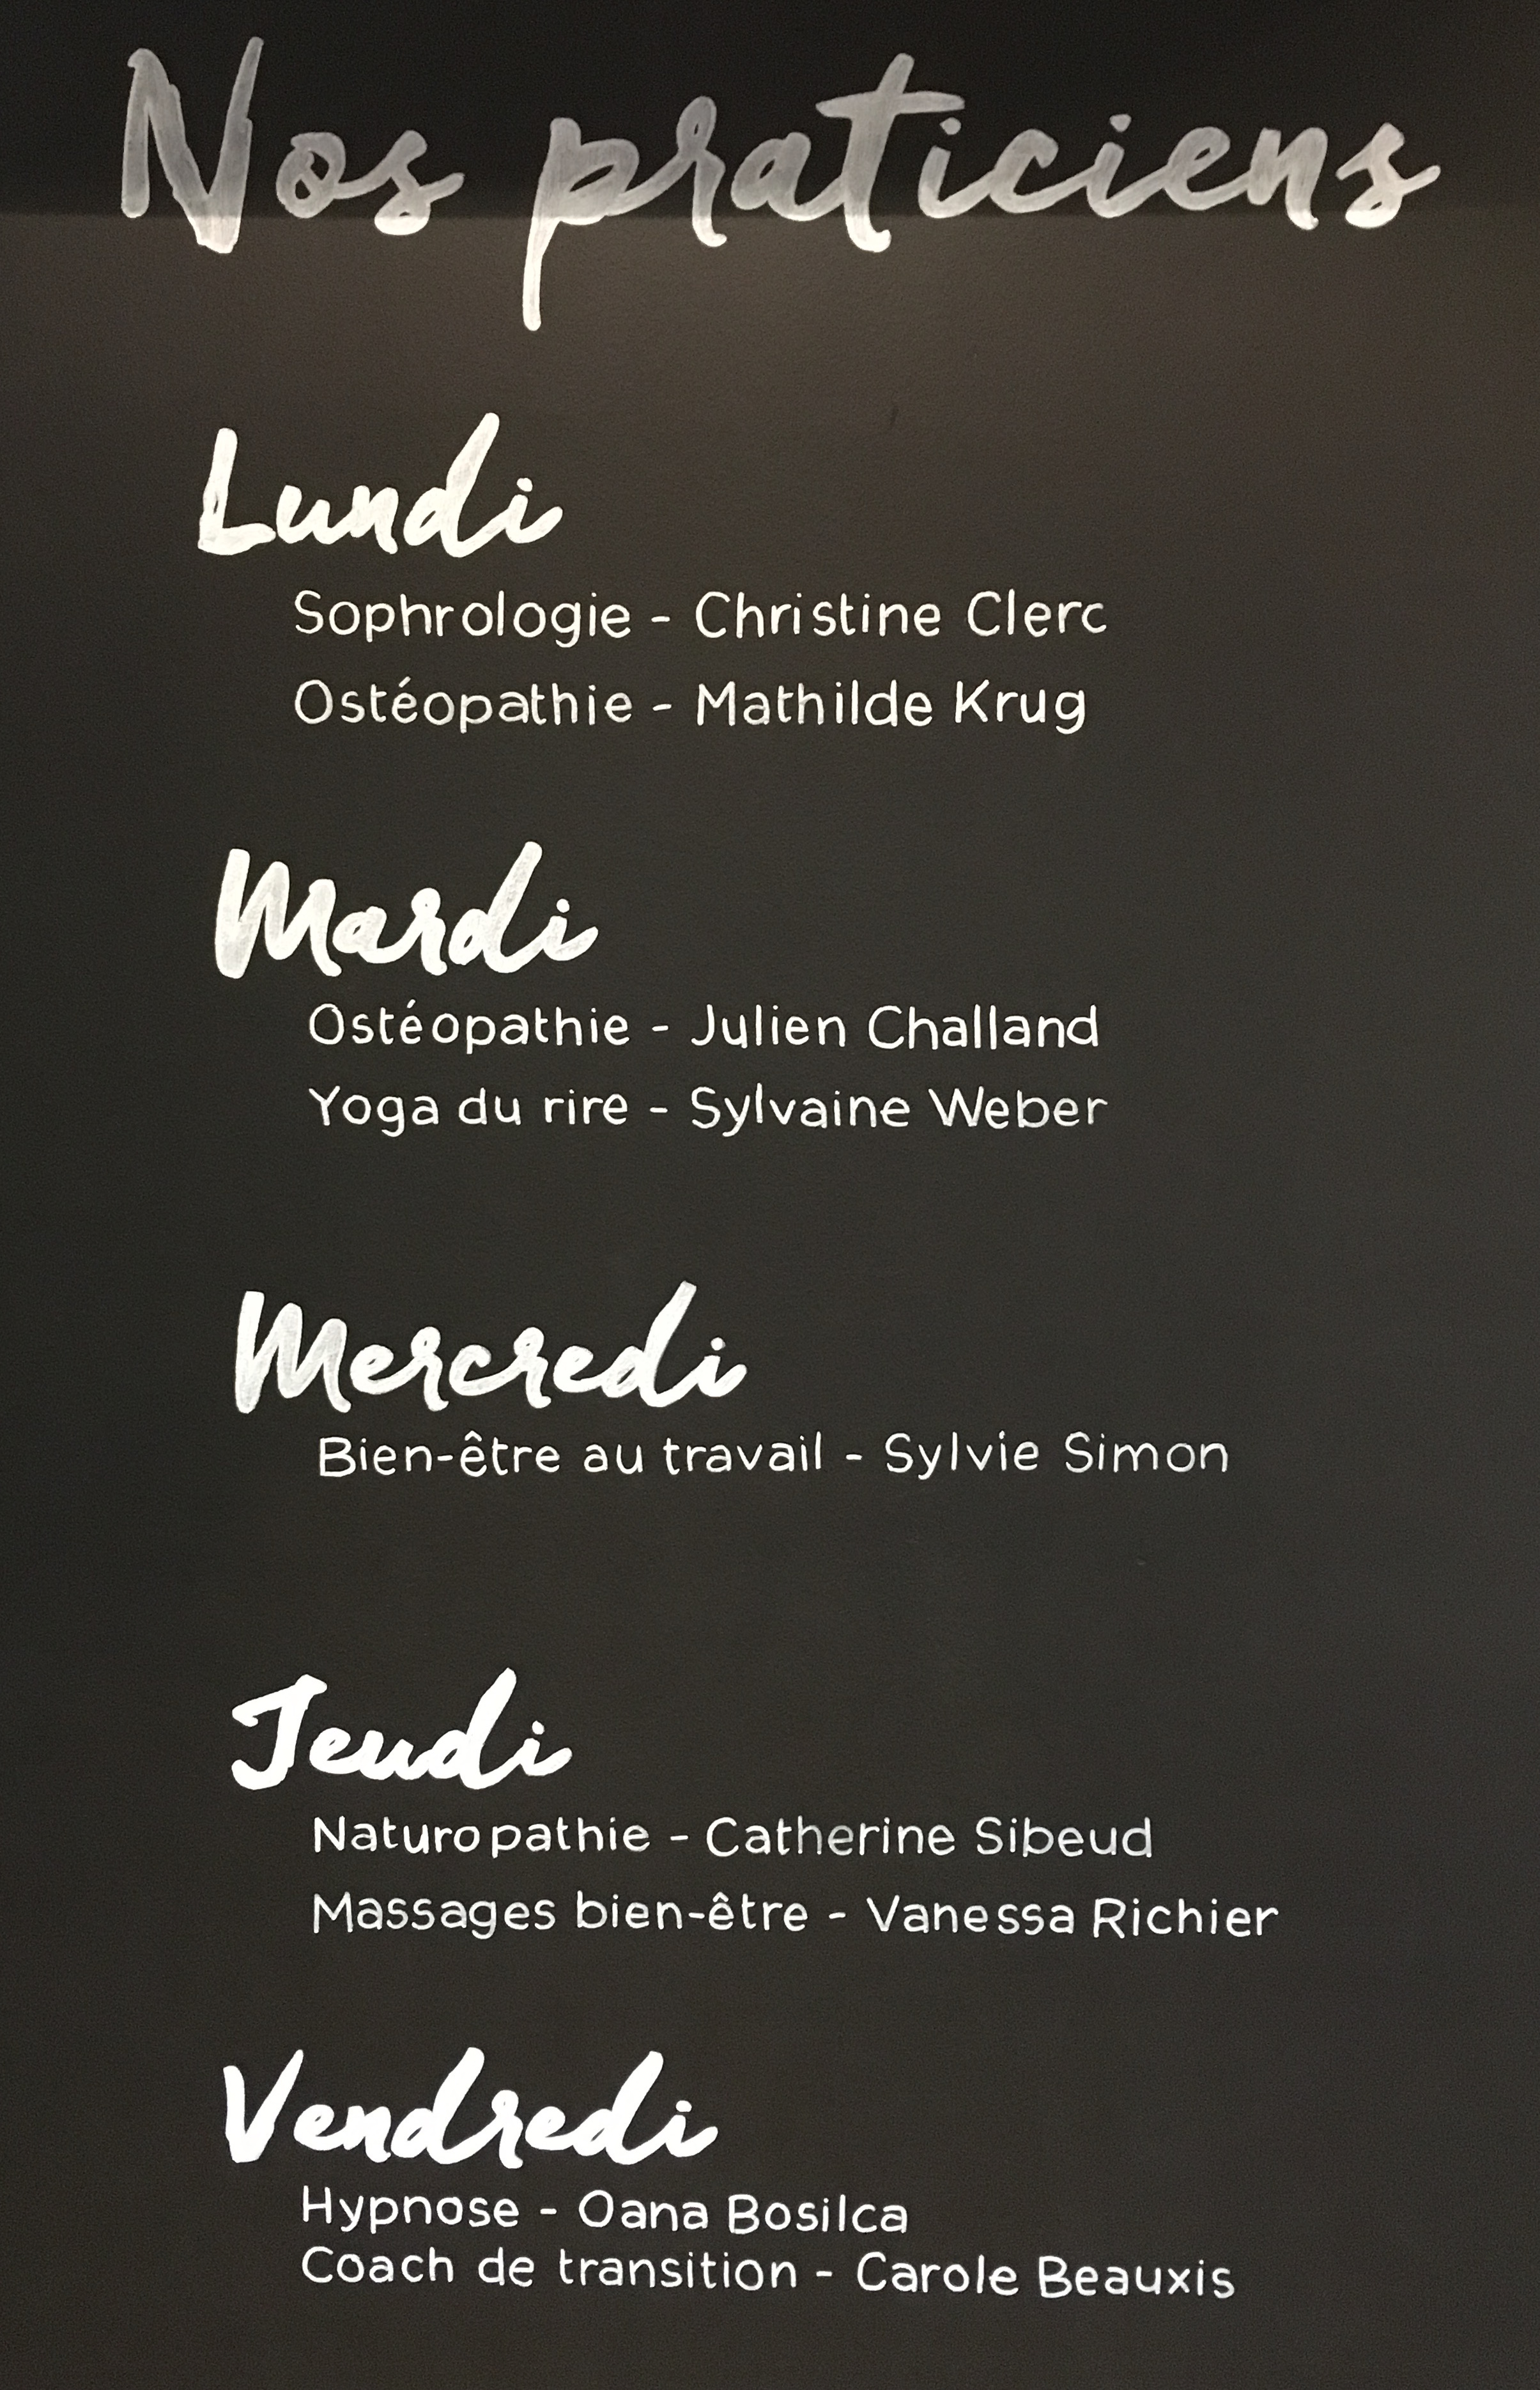 Nos praticiens
Lundi
Sophrologie - Christine Clerc
Ostéopathie - Mathilde Krug
Mardi
Ostéopathie - Julien Challand
Yoga du rire - Sylvaine Weber
Mercredi
Bien-être au travail - Sylvie Simon
Jeudi
Naturopathie - Catherine Sibeud
Massages bien-être - Vanessa Richier
Vendredi
Hypnose - Oana Bosilca
Coach de transition - Carole Beauxis